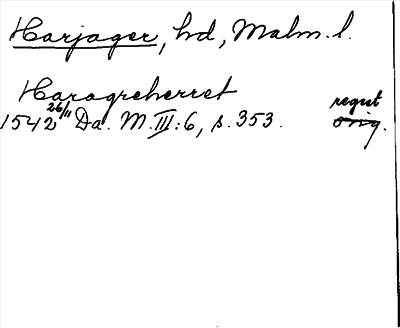 Harjager, hd, Malm. l.
Haragreherret regist
1542 26/11 Da. M. III: 6, s. 353. orig.